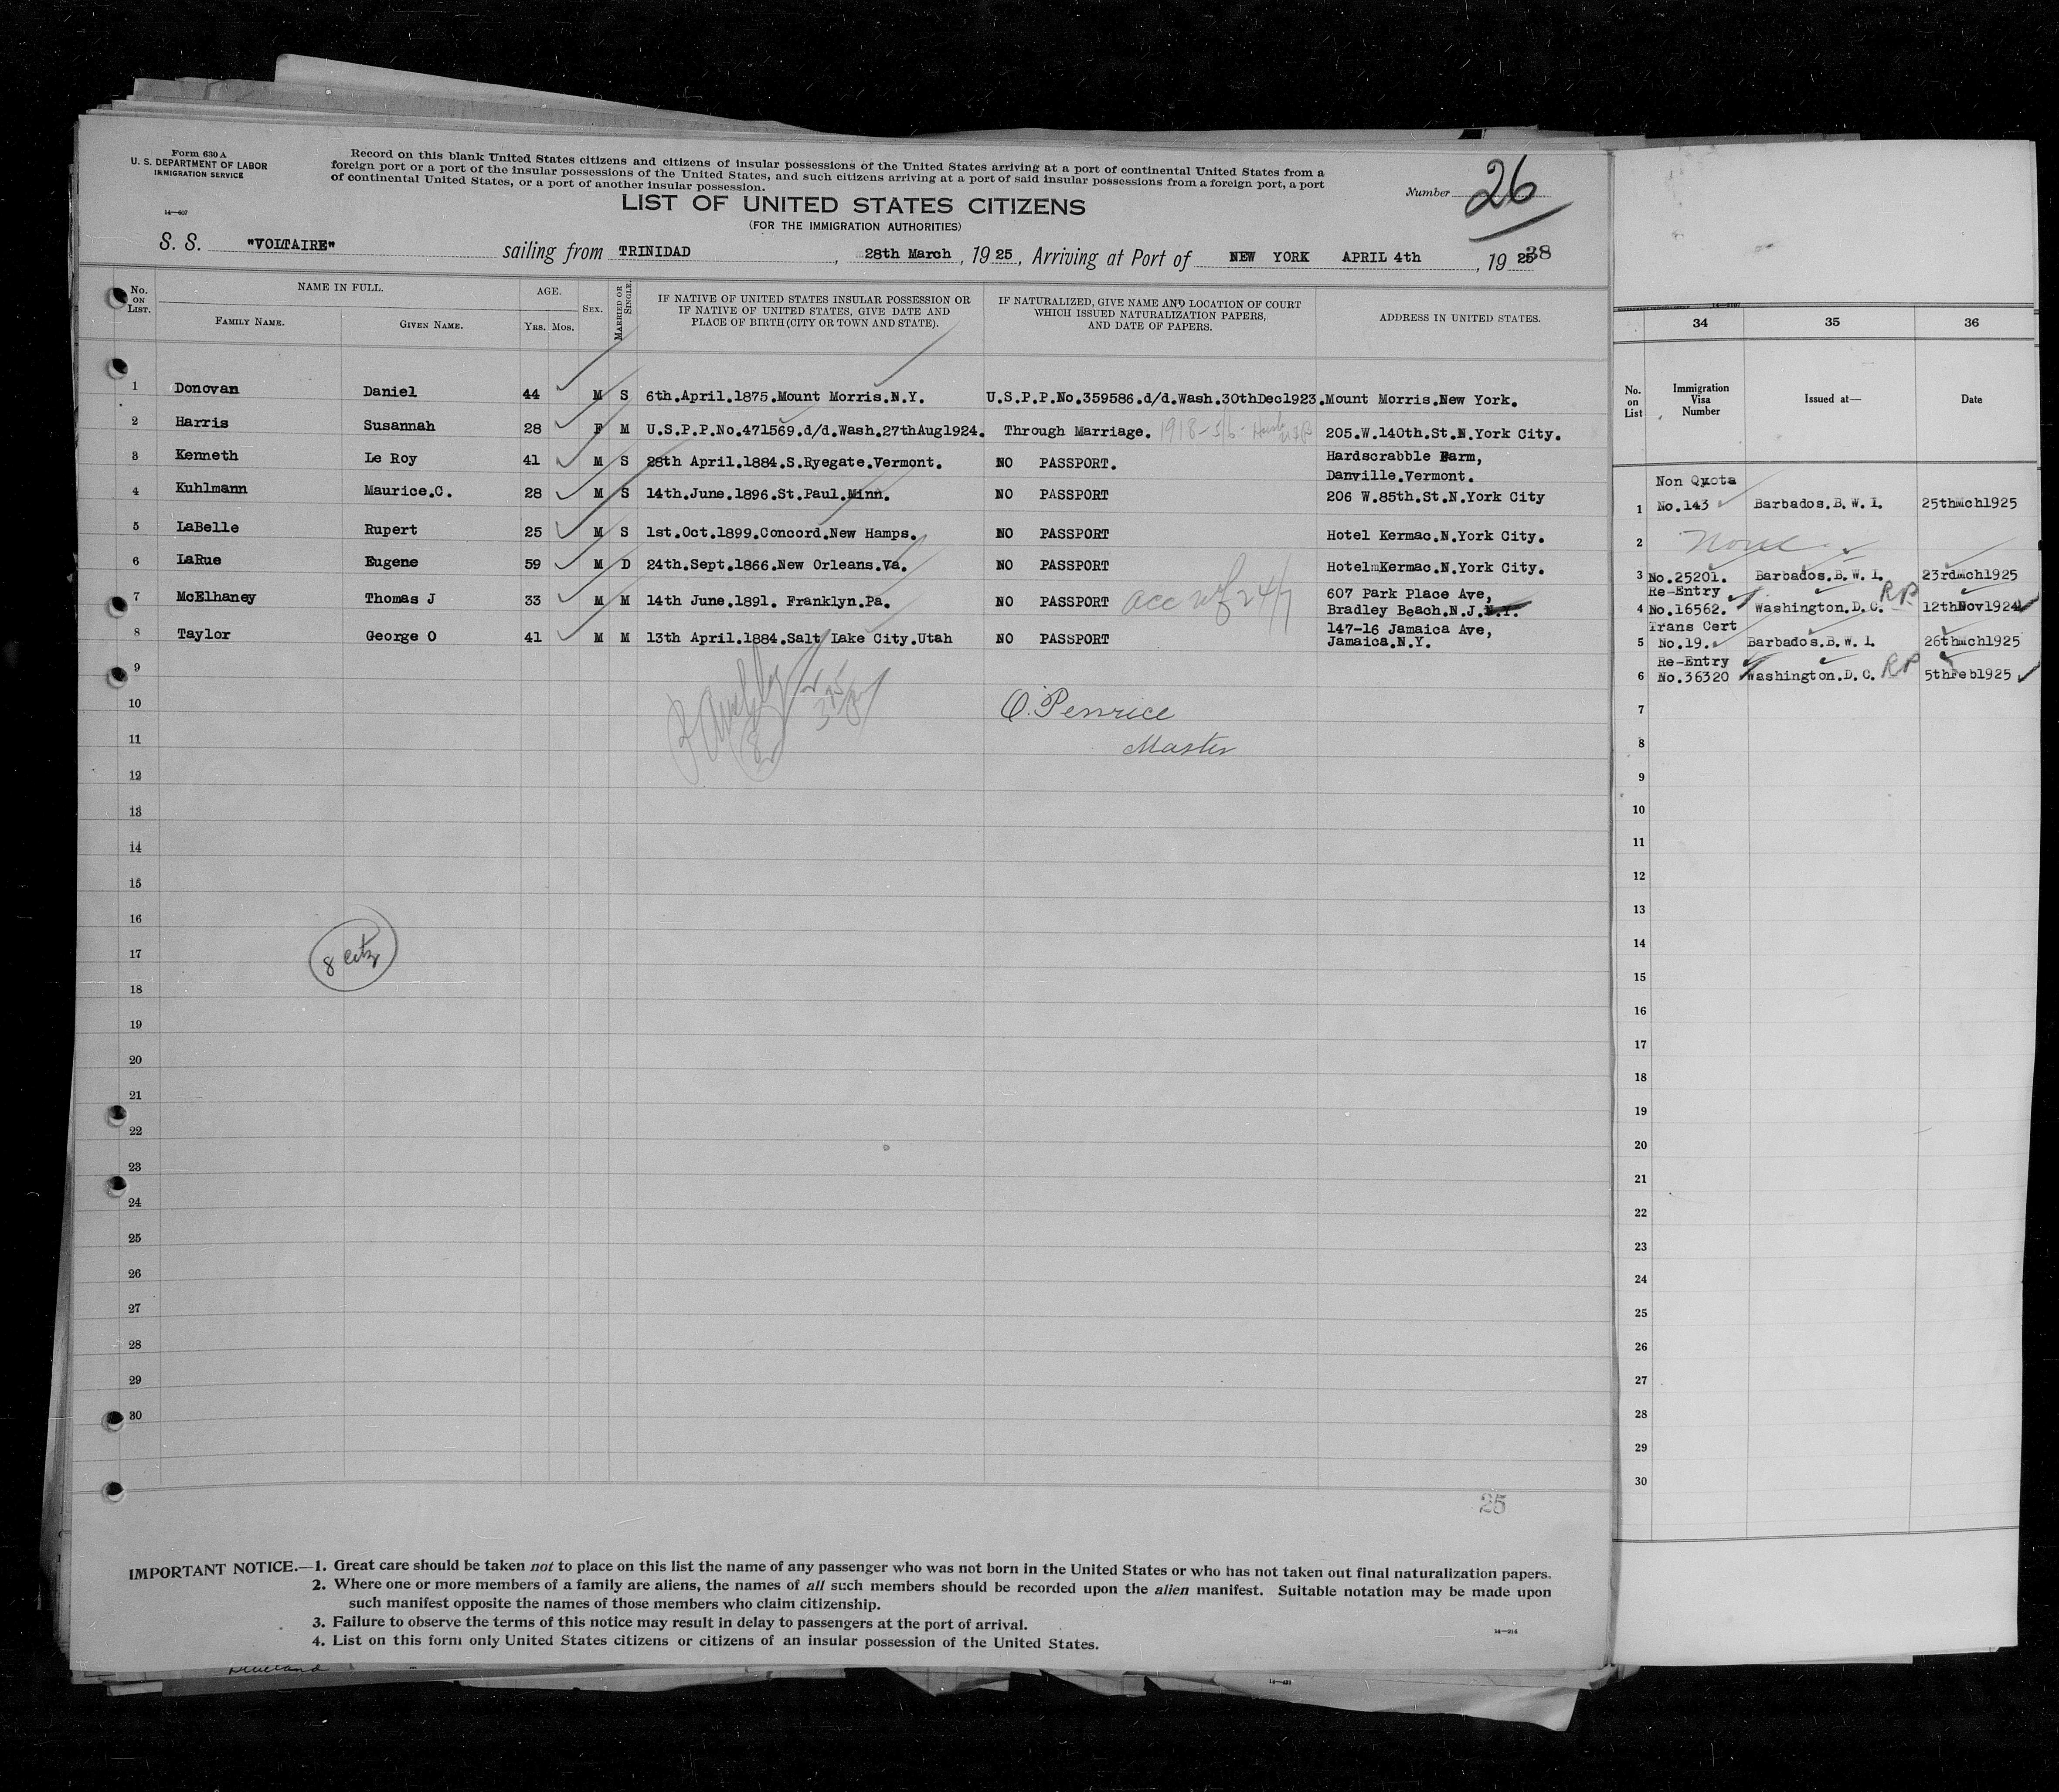 Form 630 A
U. S. DEPARTMENT OF LABOR
IMMIGRATION SERVICE
14—607
Record on this blank United States citizens and citizens of insular possessions of the United States arriving at a port of continental United States from a
foreign port or a port of the insular possessions of the United States, and such citizens arriving at a port of said insular possessions from a foreign port, a port
of continental United States, or a port of another insular possession.
Number 26
LIST OF UNITED STATES CITIZENS
(FOR THE IMMIGRATION AUTHORITIES)
S. S. "VOLTAIRE" sailing from TRINIDAD, 28th March, 1925, Arriving at Port of NEW YORK APRIL 4th, 1925 38
No. ON LIST. NAME IN FULL. FAMILY NAME. GIVEN NAME. AGE. YRS. MOS. SEX. MARRIED OR SINGLE. IF NATIVE OF UNITED STATES INSULAR POSSESSION OR IF NATIVE OF UNITED STATES, GIVE DATE AND PLACE OF BIRTH (CITY OR TOWN AND STATE). IF NATURALIZED, GIVE NAME AND LOCATION OF COURT WHICH ISSUED NATURALIZATION PAPERS, AND DATE OF PAPERS. ADDRESS IN UNITED STATES.
1 Donovan Daniel 44 M S 6th.April.1875.Mount Morris.N.Y. U.S.P.P.No.359586.d/d.Wash.30thDec1923.Mount Morris.New York.
2 Harris Susannah 28 F M U.S.P.P.No.471569.d/d.Wash.27thAug1924. Through Marriage. 1918 205.W.140th.St.N.York City.
3 Kenneth Le Roy 41 M S 28th April.1884.S.Ryegate.Vermont. NO PASSPORT. Hardscrabble Farm,
Danville.Vermont.
4 Kuhlmann Maurice.C. 28 M S 14th.June.1896.St.Paul.Minn. NO PASSPORT 206 W.85th.St.N.York City
5 LaBelle Rupert 25 M S 1st.Oct.1899.Concord.New Hamps. NO PASSPORT Hotel Kermac.N.York City.
6 LaRue Eugene 59 M D 24th.Sept.1866.New Orleans.Va. NO PASSPORT HotelmKermac.N.York City.
7 McElhaney Thomas J 33 M M 14th June.1891. Franklyn.Pa. NO PASSPORT 607 Park Place Ave,
Bradley Beach.N.J.N.Y.
8 Taylor George O 41 M M 13th April.1884.Salt Lake City.Utah NO PASSPORT 147-16 Jamaica Ave,
Jamaica.N.Y.
9
10 O. Penrice
11 Master
12
13
14
15
16
17 8 Citz
18
19
20
21
22
23
24
25
26
27
28
29
30
25
IMPORTANT NOTICE.—1. Great care should be taken not to place on this list the name of any passenger who was not born in the United States or who has not taken out final naturalization papers.
2. Where one or more members of a family are aliens, the names of all such members should be recorded upon the alien manifest. Suitable notation may be made upon
such manifest opposite the names of those members who claim citizenship.
3. Failure to observe the terms of this notice may result in delay to passengers at the port of arrival.
4. List on this form only United States citizens or citizens of an insular possession of the United States.
14—214
34 35 36
No. on List Immigration Visa Number Issued at— Date
Non Quota
1 No.143 Barbados.B.W.I. 25thMch1925
2 None
3 No.25201. Barbados.B.W.I. 23rdMch1925
Re-Entry RP
4 No.16562. Washington.D.C. 12thNov1924
Trans Cert
5 No.19. Barbados.B.W.I. 26thMch1925
Re-Entry
6 No.36320 Washington.D.C. RP 5thFeb1925
7
8
9
10
11
12
13
14
15
16
17
18
19
20
21
22
23
24
25
26
27
28
29
30